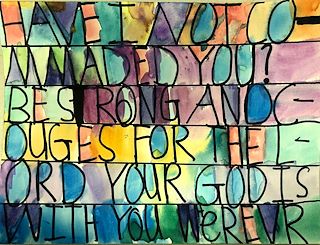 HAVE I NOT CO-
MMADED YOU?
BE STRONG AND C-
OUGES FOR THE L-
ORD YOUR GOD IS
WITH YOU WeREVR